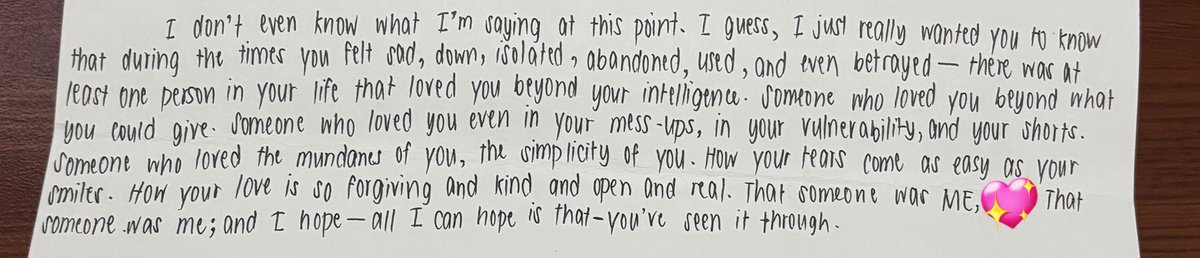 I don't even know what I'm saying at this point. I guess, I just really wanted you to know
that during the times you felt sad, down, isolated, abandoned, used, and even betrayed — there was at
least one person in your life that loved you beyond your intelligence. Someone who loved you beyond what
you could give. Someone who loved you even in your mess-ups, in your vulnerability, and your shorts.
Someone who loved the mundanes of you, the simplicity of you. How your tears come as easy as your
smiles. How your love is so forgiving and kind and open and real. That someone was ME, That
someone was me; and I hope — all I can hope is that - you've seen it through.